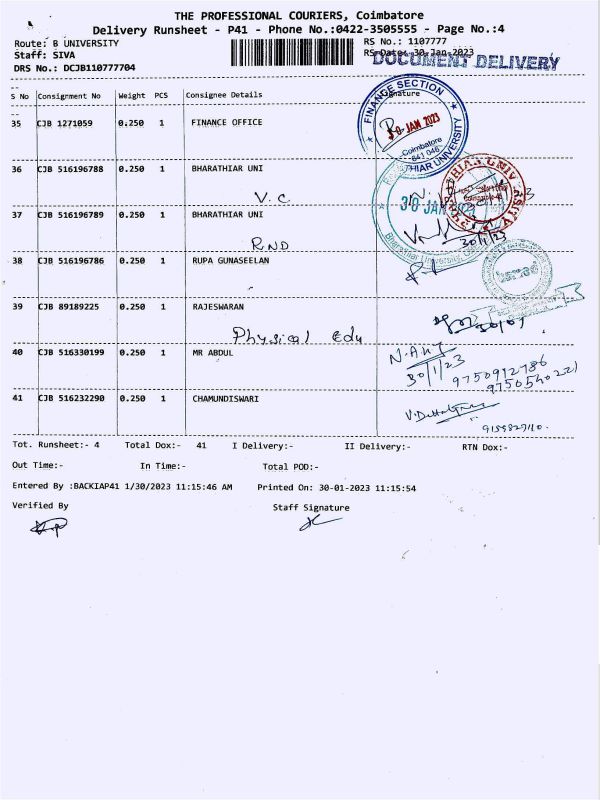 THE PROFESSIONAL COURIERS, Coimbatore
Delivery Runsheet - P41 - Phone No.:0422-3505555 - Page No.:4
Route: B UNIVERSITY
RS No.: 1107777
Staff: SIVA
RS Date: 30-Jan-2023
DOCUMENT DELIVERY
DRS No.: DCJB110777704
S No Consignment No Weight PCS Consignee Details Signature
FINANCE SECTION
JAN 2023
Coimbatore
641 046
BHARATHIAR UNIVERSITY
35 CJB 1271059 0.250 1 FINANCE OFFICE
36 CJB 516196788 0.250 1 BHARATHIAR UNI
V.C
30 JAN 2023
Bharathiar University
37 CJB 516196789 0.250 1 BHARATHIAR UNI
30/1/23
RND
38 CJB 516196786 0.250 1 RUPA GUNASEELAN
39 CJB 89189225 0.250 1 RAJESWARAN
Physical Edu
40 CJB 516330199 0.250 1 MR ABDUL
30/1/23
9750912786
41 CJB 516232290 0.250 1 CHAMUNDISWARI
Tot. Runsheet:- 4 Total Dox:- 41 I Delivery:- II Delivery:- RTN Dox:-
Out Time:- In Time:- Total POD:-
Entered By :BACKIAP41 1/30/2023 11:15:46 AM Printed On: 30-01-2023 11:15:54
Verified By Staff Signature